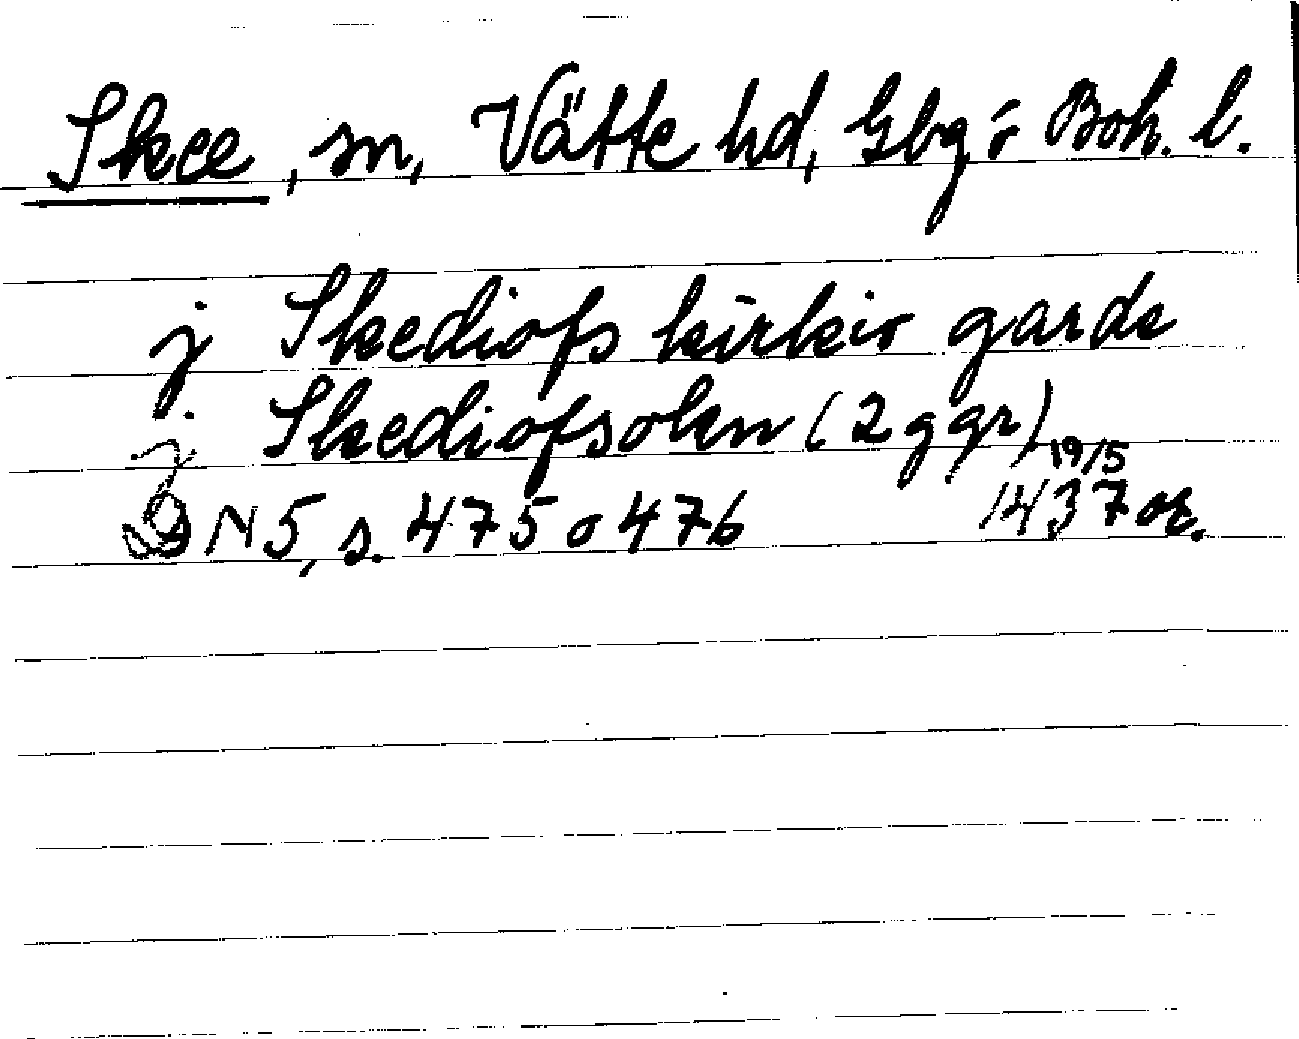 Skee, sn, Vätte hd, Gbg o Boh. l.
j Skediofs kirkio garde
j Skediofsokn (2 ggr)
19/5
DN 5, s. 475 o 476 1437 or.